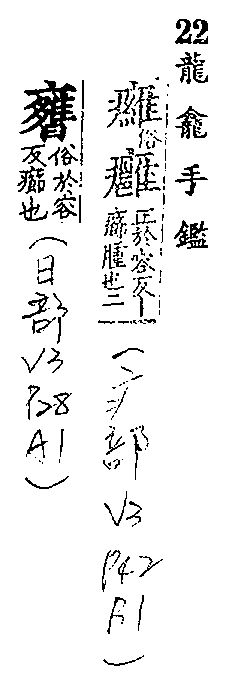 22龍龕手鑑
俗
正於容反｜
癤腫也二
(疒部 V3 P42 A1)
俗於容
反癤也
(日部 V3 P28 A1)